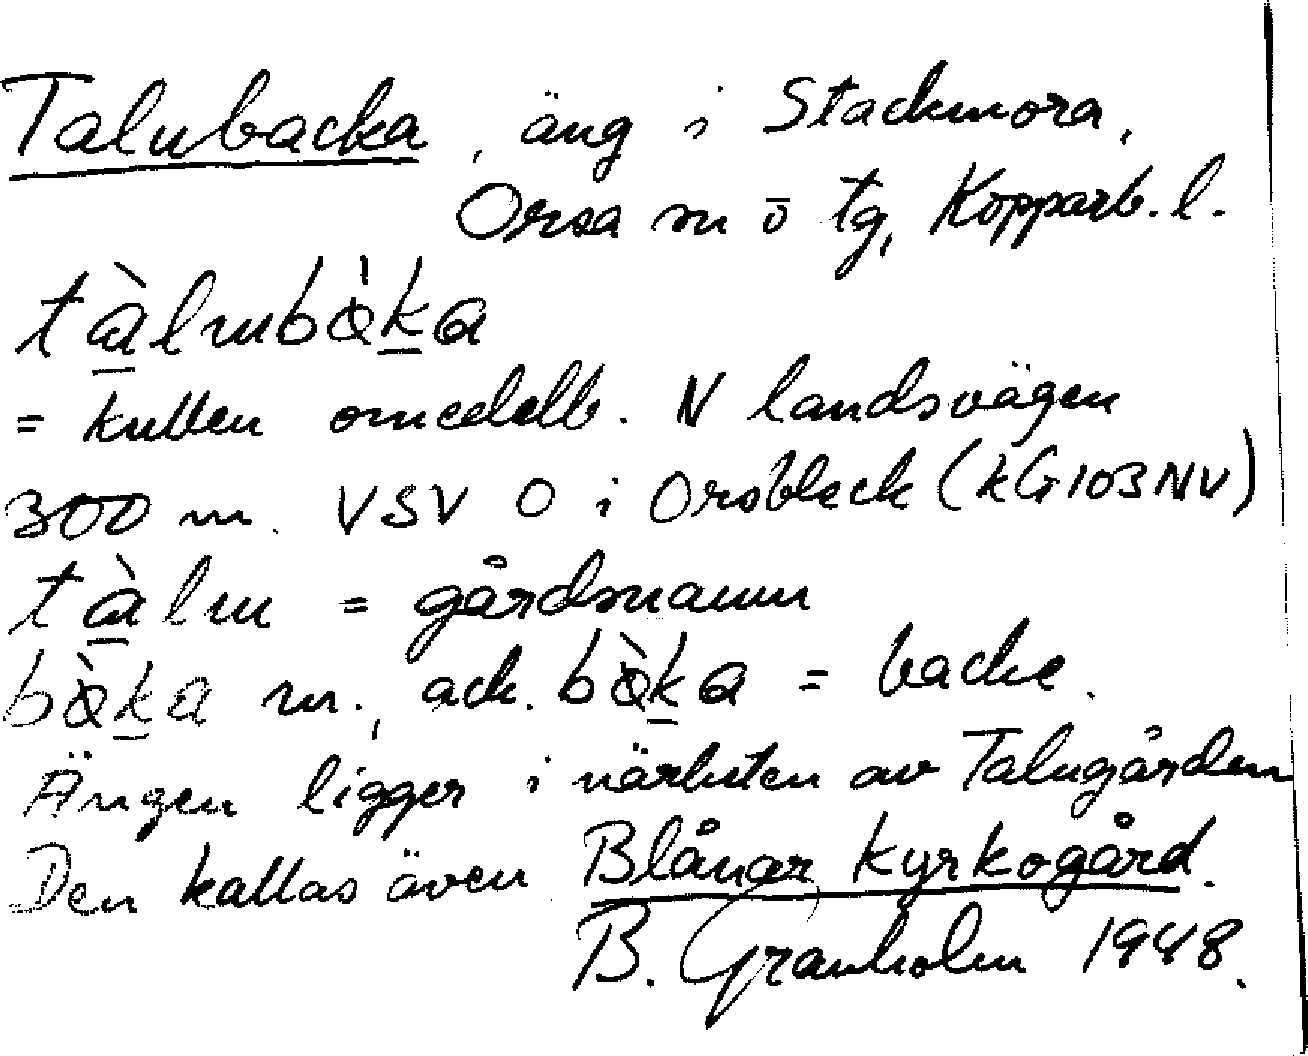 Talubacka, äng i Stackmora,
Orsa sn o tg, Kopparb. l.
tàlmbàka
= kullen omedelb. N landsvägen
300 m. VSV O i Orsbleck (kG103NV)
tàlm = gårdsnamn
bàka m., ack. bàka = backe.
Ängen ligger i närheten av Talugården
Den kallas även Blånar kyrkogård.
B. Granholm 1948.